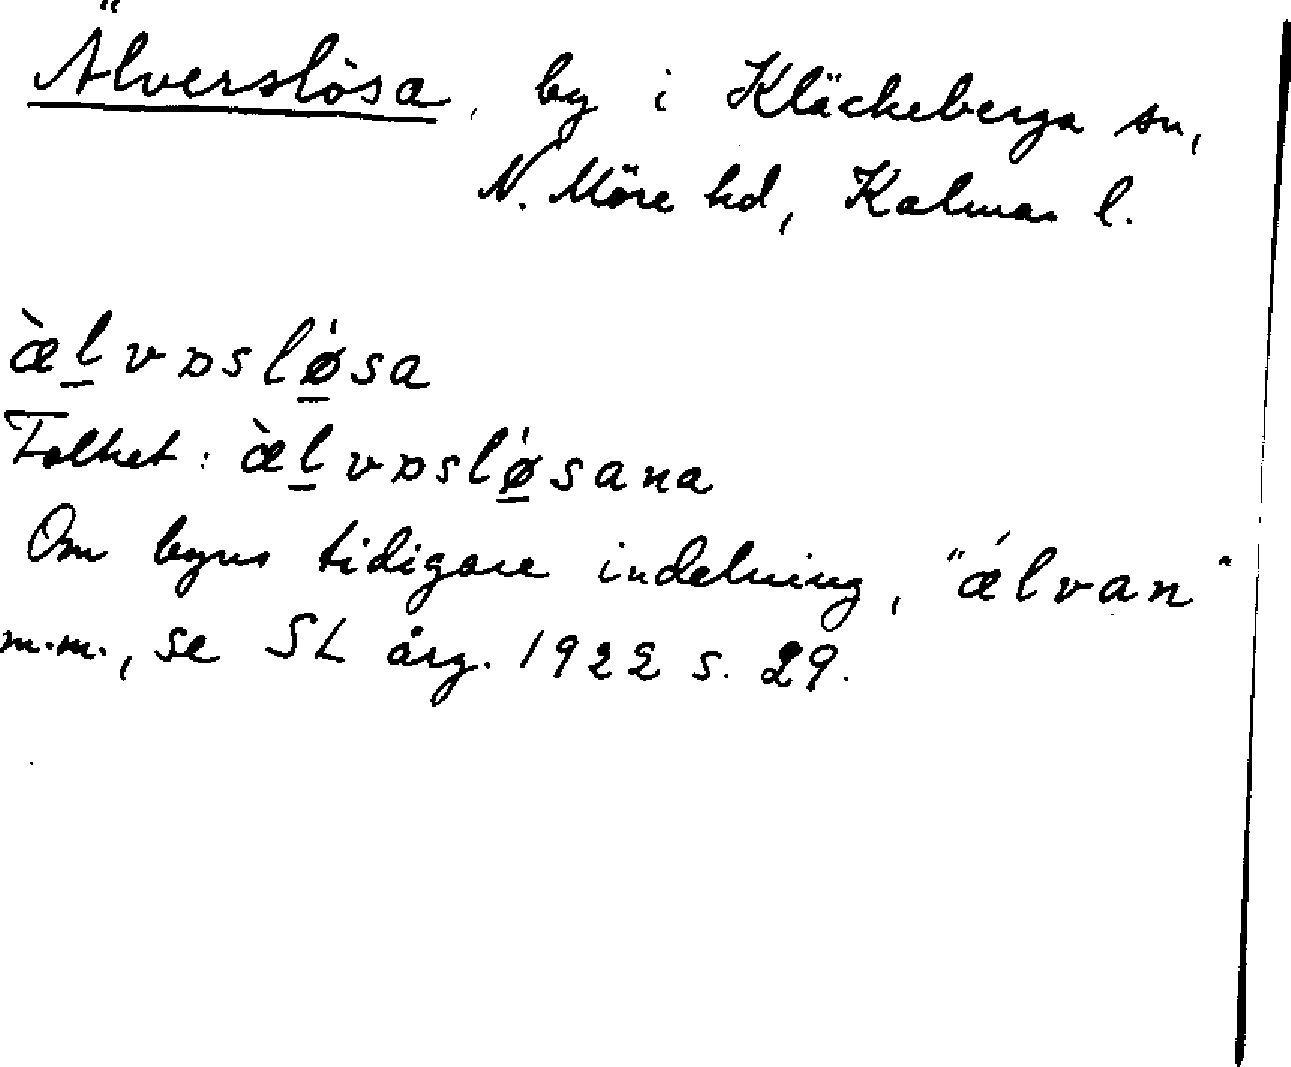 Älverslösa, by i Kläckeberga sn,
N. Möre hd, Kalmar l.
æ̀l̲vɒslø̲̍sa
Folket: æ̀l̲vɒslø̲̍sana
Om byns tidigare indelning, "ǽlvan"
m.m., se SL årg. 1922 s. 29.